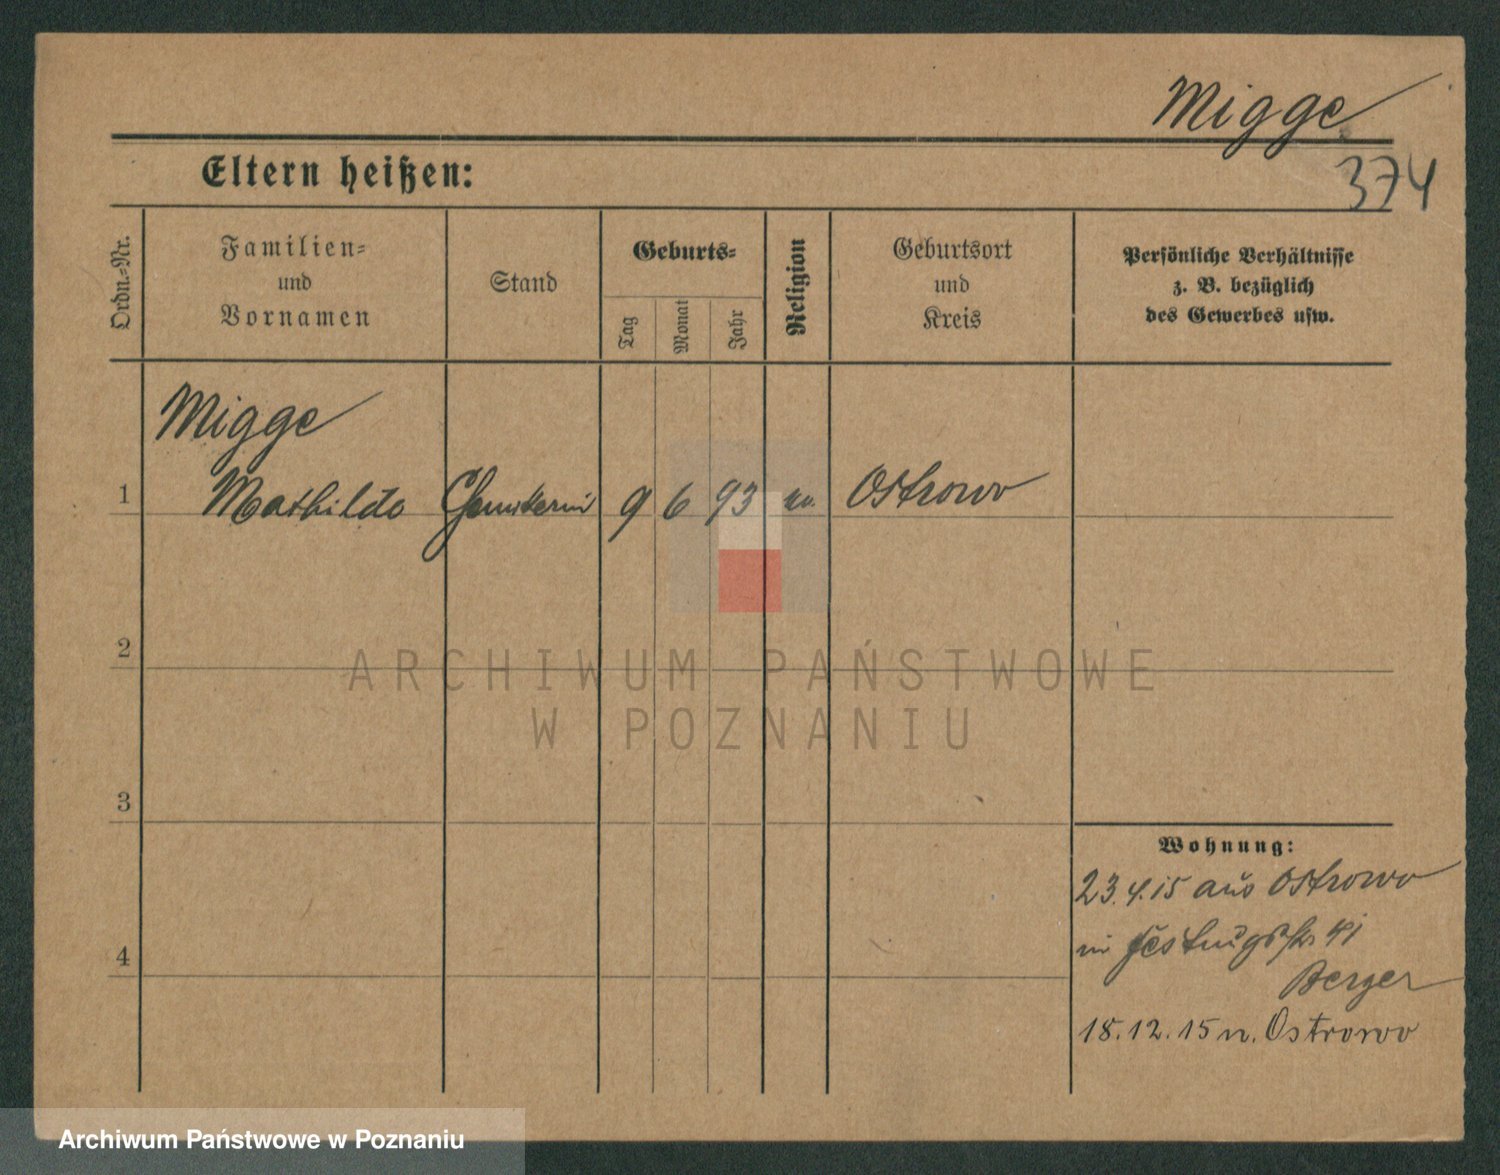 Migge
374
Eltern heißen:
Ordn.-Nr.
Familien-
und
Vornamen
Stand
Geburts-
Tag
Monat
Jahr
Religion
Geburtsort
und
Kreis
Persönliche Verhältnisse
z. B. bezüglich
des Gewerbes usw.
Migge
1 Mathilde 9 6 93 Ostrowo
2
3
4
Wohnung:
23.4.15 aus Ostrowo
41
Berger
18.12.15 n. Ostrowo
ARCHIWUM PAŃSTWOWE
W POZNANIU
Archiwum Państwowe w Poznaniu